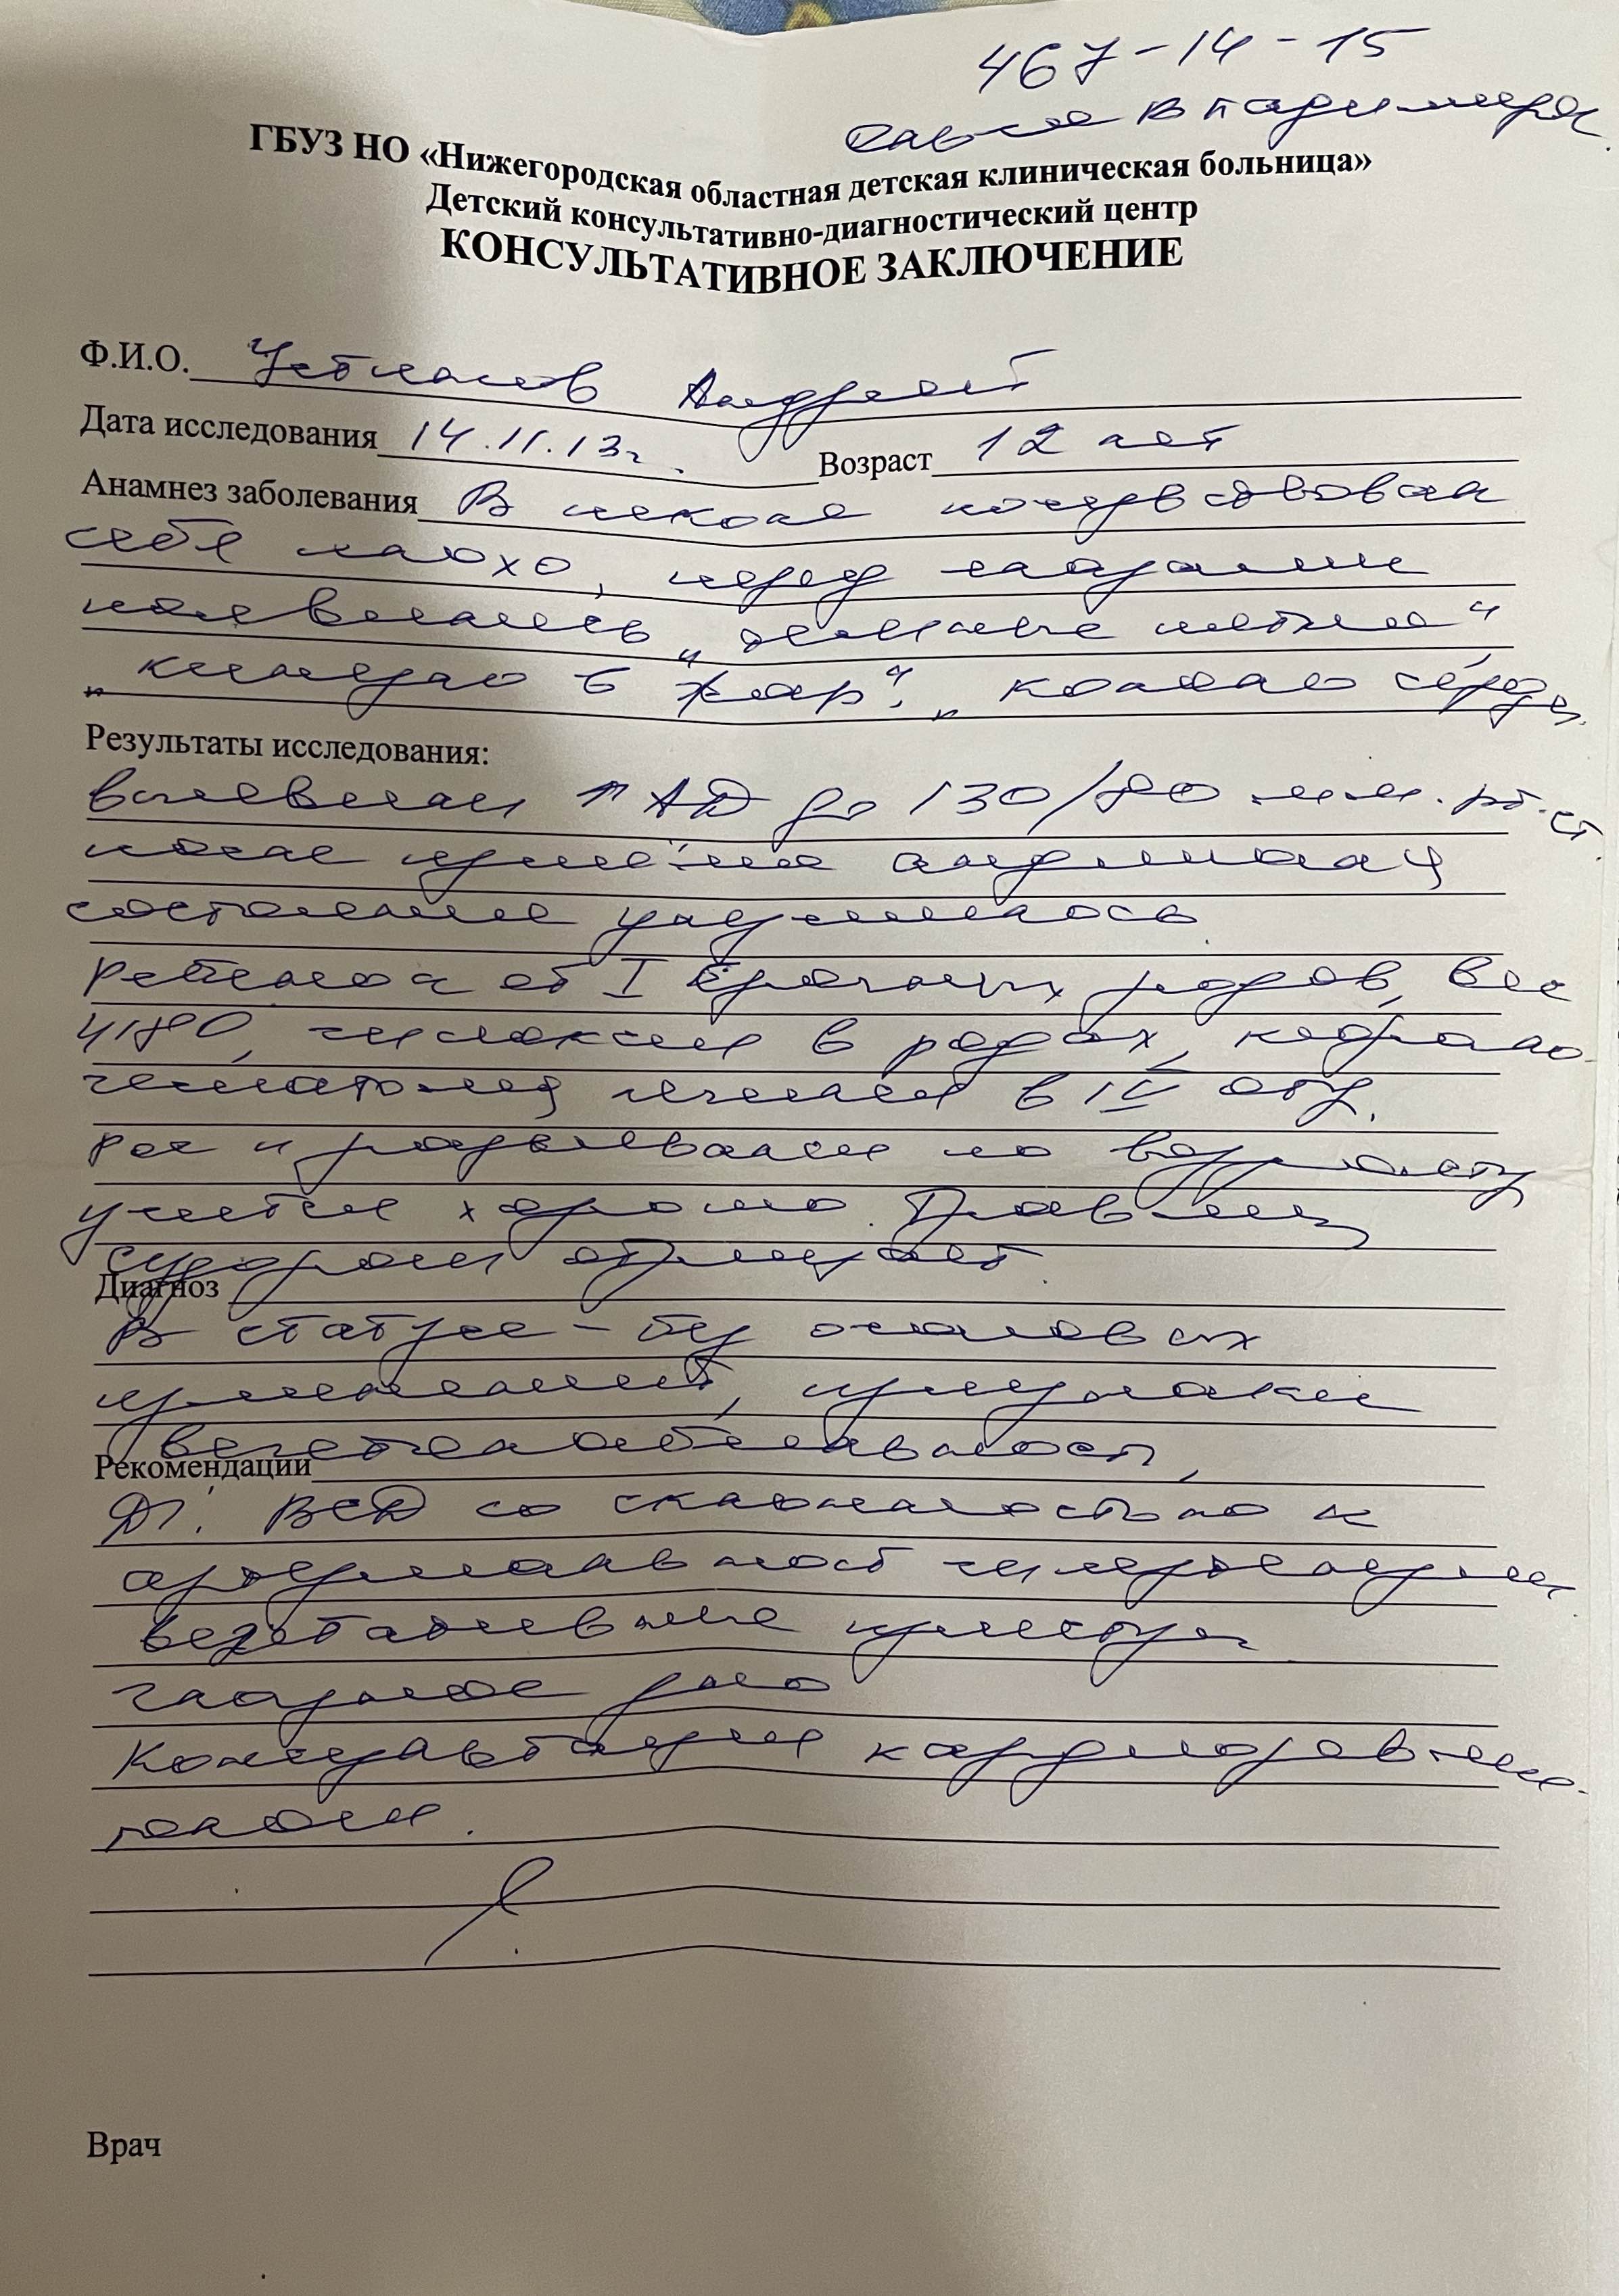 467-14-15
ГБУЗ НО «Нижегородская областная детская клиническая больница»
Детский консультативно-диагностический центр
КОНСУЛЬТАТИВНОЕ ЗАКЛЮЧЕНИЕ
Ф.И.О. Андрей
Дата исследования 14.11.13г. Возраст 12 лет
Анамнез заболевания В школе почувствовал
себя плохо, перед глазами
появились „
„кидало в жар", „кололо сердц
Результаты исследования:
выявлен ↑ АД до 130/80 мм. рт. ст.
после приёма
состояние улучшилось
Ребенок от I срочных родов, вес
4180, гипоксия в родах, кефало-
гематома, лечился в IV отд.
Рос и развивался по возрасту
учится хорошо. Травмы,
судороги отрицает
Диагноз
В статусе - без очаговых
проявлений, признаки
вегетолабильности,
Рекомендации
Дз: ВСД со склонностью к
артериальной гипертензии,
вегетативные приступы
глазное дно
Консультация кардиоревма-
толога.
Врач